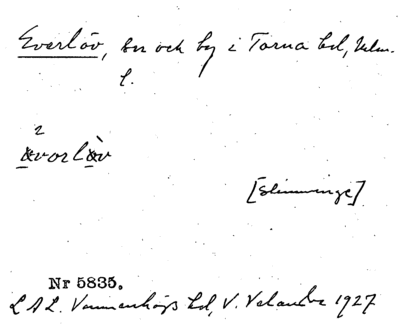 Everlöv, sn och by i Torna hd, Malm.
l.
2
ævorlæ̀v
[Slimminge]
Nr 5835.
L A L. Vemmenhögs hd, V. Velander 1927